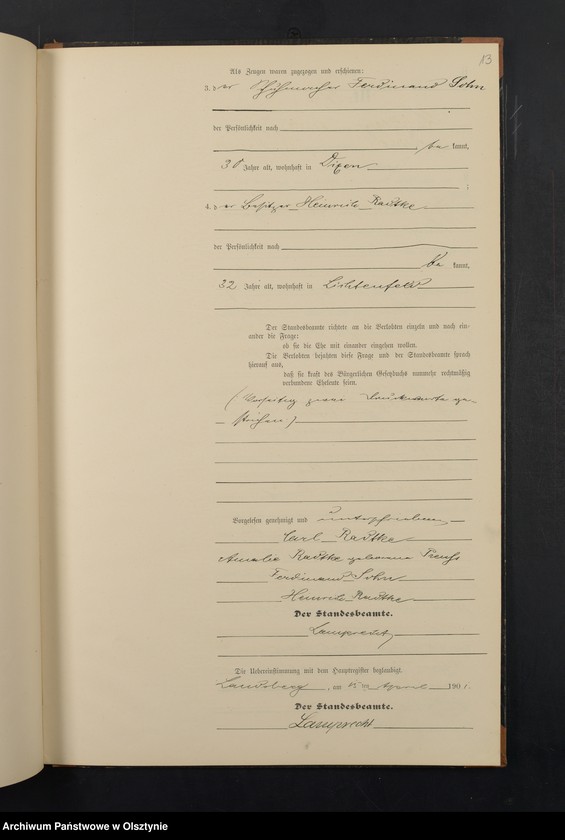 13
Als Zeugen waren zugezogen und erschienen:
3. der Schuhmacher Ferdinand Sohn
der Persönlichkeit nach
be kannt,
30 Jahre alt, wohnhaft in Dixen
4. der Besitzer Heinrich Radtke
der Persönlichkeit nach
be kannt,
32 Jahre alt, wohnhaft in Lichtenfeld
Der Standesbeamte richtete an die Verlobten einzeln und nach ein-
ander die Frage:
ob sie die Ehe mit einander eingehen wollen.
Die Verlobten bejahten diese Frage und der Standesbeamte sprach
hierauf aus,
daß sie kraft des Bürgerlichen Gesetzbuchs nunmehr rechtmäßig
verbundene Eheleute seien.
(Vorseitig zwei Druckworte ge-
strichen)
Vorgelesen, genehmigt und unterschrieben
Carl Radtke
Amalie Radtke geborene Preuß
Ferdinand Sohn
Heinrich Radtke
Der Standesbeamte.
Lamprecht
Die Uebereinstimmung mit dem Hauptregister beglaubigt.
Landsberg, am April 1901.
Der Standesbeamte.
Lamprecht
Archiwum Państwowe w Olsztynie